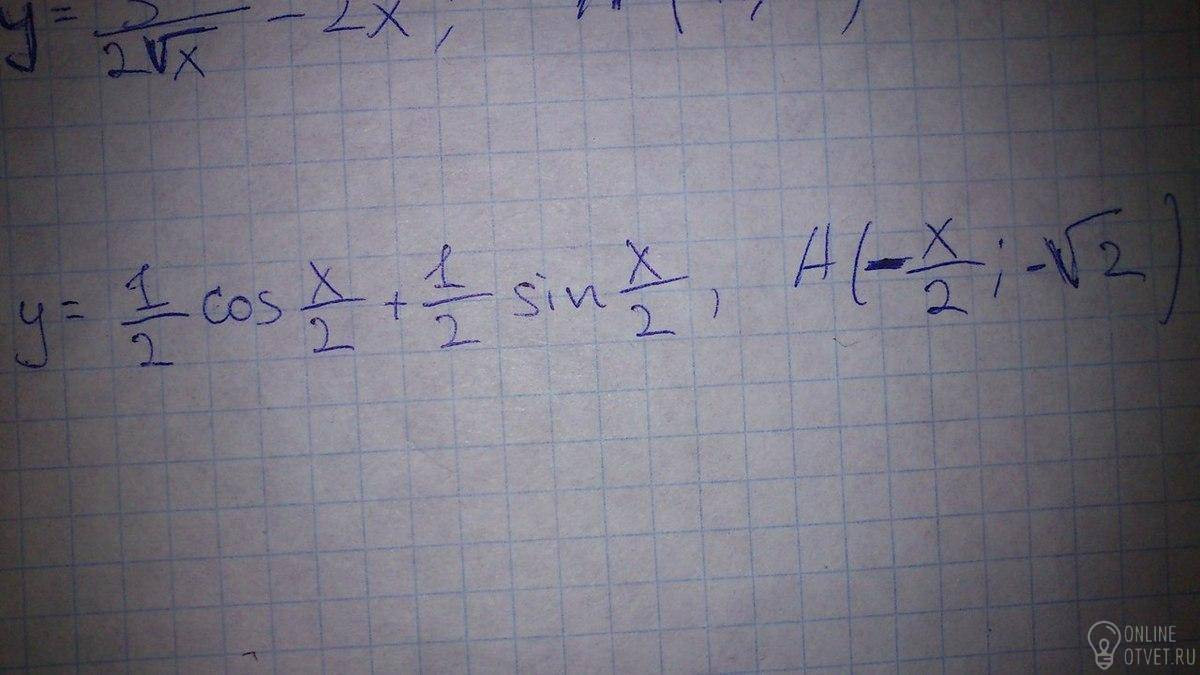 y = 3/(2√x) - 2x;
y = 1/2 cos x/2 + 1/2 sin x/2, A(-x/2; -√2)
ONLINE
OTVET.RU